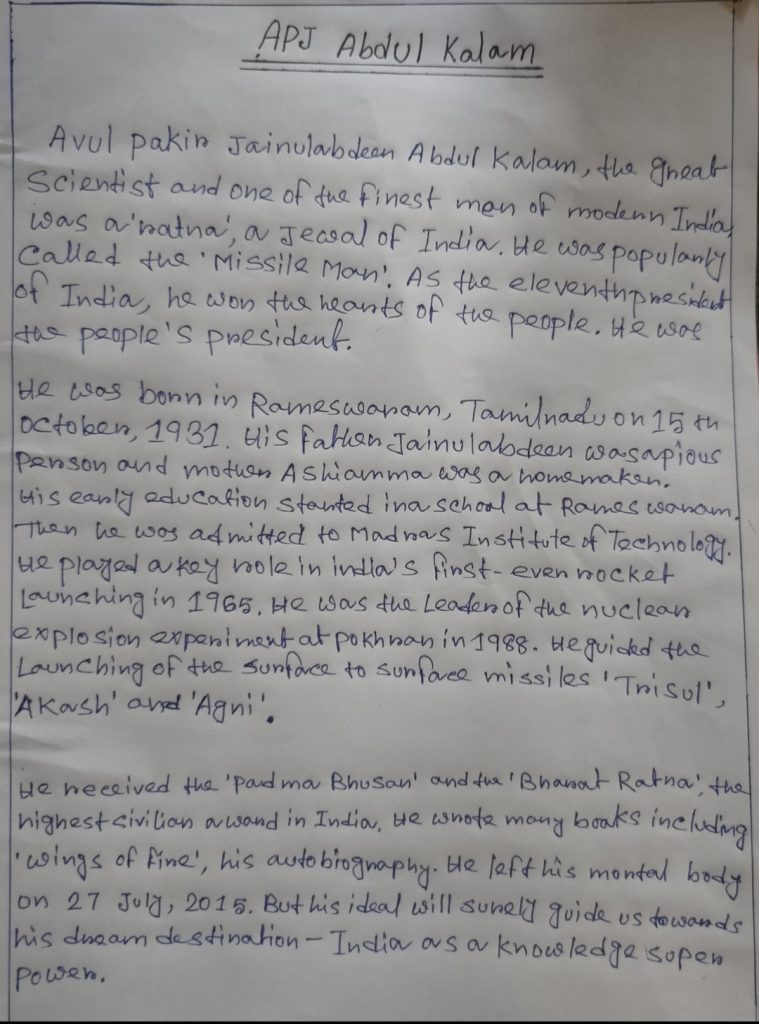 APJ Abdul Kalam
Avul Pakir Jainulabdeen Abdul Kalam, the great
Scientist and one of the finest men of modern India,
was a 'ratna', a Jewal of India. He was popularly
Called the 'Missile Man'. As the eleventh president
of India, he won the hearts of the people. He was
the people's president.
He was born in Rameswaram, Tamilnadu on 15 th
October, 1931. His father Jainulabdeen was a pious
person and mother Ashiamma was a homemaker.
His early education started in a school at Rameswaram.
Then he was admitted to Madras Institute of Technology.
He played a key role in india's first-ever rocket
Launching in 1965. He was the Leader of the nuclear
explosion experiment at pokhran in 1988. He guided the
Launching of the surface to surface missiles 'Trisul',
'Akash' and 'Agni'.
He received the 'Padma Bhusan' and the 'Bharat Ratna', the
highest civilian award in India. He wrote many books including
'wings of fire', his autobiography. He left his mortal body
on 27 July, 2015. But his ideal will surely guide us towards
his dream destination - India as a knowledge super
power.